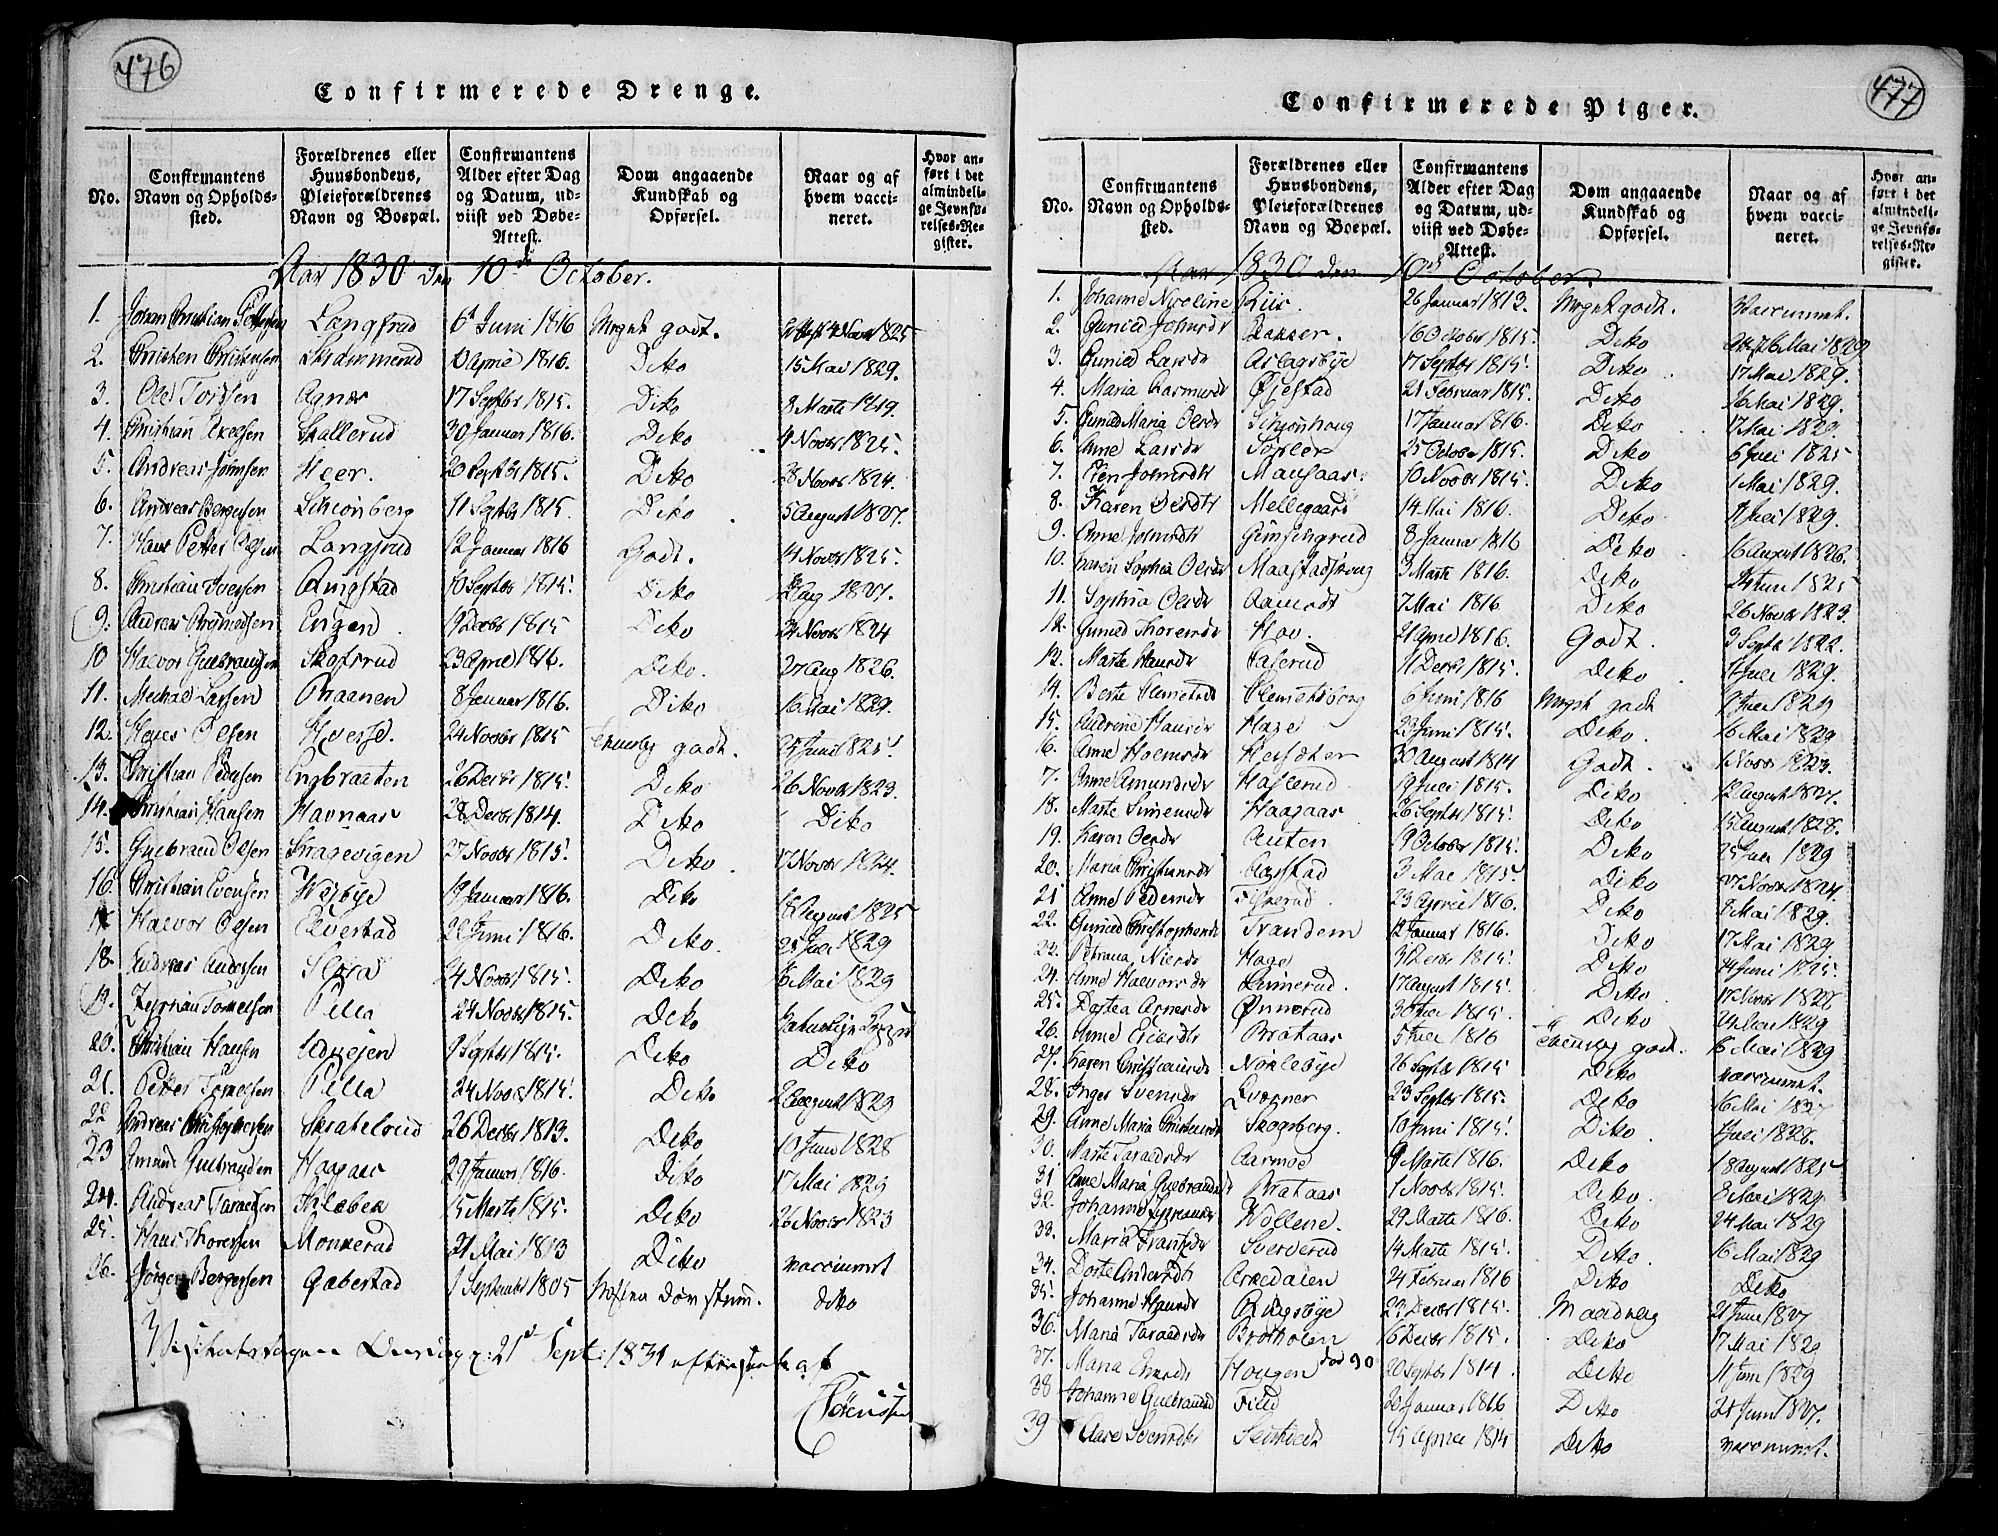 476
Confirmerede Drenge.
No.
Confirmantens Navn og Opholdssted.
Forældrenes eller Huusbondens, Pleieforældrenes Navn og Boepæl.
Confirmantens Alder efter Dag og Datum, udviist ved Døbe-Attest.
Dom angaaende Kundskab og Opførsel.
Naar og af hvem vaccineret.
Hvor anført i det almindelige Jevnførelses-Register.
Aar 1830 den 10de October.
1. Johan Christian Langfrud 6t Juni 1816 Meget godt. 4 Novbr 1825
2. Christen Christensen 0 April 1816. Dito 15 Mai 1829.
3. Ole Agnæs 17 Septbr 1815. Dito 8 Marts 1819.
4. Christian Axelsen Skallerud 30 Januar 1816. Dito 4 Novbr 1825.
5. Andreas Johnsen Heer. 20 Septbr 1815. Dito 28 Novbr 1824.
6. Andreas Bergersen Schiønberg 11 Septbr 1815. Dito 5 August 1827.
7. Hans Petter Olsen Langfrud 12 Januar 1816 Godt. 14 Novbr 1825.
8. Christian Iversen Ringstad 10 Septbr 1815. Dito Aug 1827.
9. Andreas Engen 19 Decbr 1815 Dito 24 Novbr 1824
10 Halvor Gulbrandsen Skofsrud 23 April 1816. Dito. 27 Aug 1826.
11. Michal Larsen Braanen 8 Januar 1816. Dito 16 Mai 1829.
12. Olsen 24 Novbr 1815 temelig godt. 25 Juni 1825.
13. Christian Pedersen Engbraaten 26 Decbr 1815. Dito 26 Novbr 1823.
14. Christian Hansen Havnaas 28 Decbr 1814. Dito Dito
15. Gulbrand Olsen Kragevigen 27 Novbr 1815. Dito 17 Novbr 1824.
16. Christian Evensen Vesbye 19 Januar 1816. Dito 16 August 1825
17 Halvor Olsen Elvestad 22 Juni 1816. Dito. 25 Juli 1829
18 Andreas Andersen 24 Novbr 1815. Dito 16 Mai 1829
19. Tomesen Pella 24 Novbr 1815. Dito Naturlige Kopper
20. Christian Hansen 9 Septbr 1815. Dito Dito
21. Petter Tomesen Pella 24 Novbr 1815. Dito August 1829
22 Andreas Christophersen 26 Decbr 1813. Dito 10 Juni 1828
23 Amund Gulbrandsen Haagaas 29 Januar 1816. Dito 17 Mai 1829
24. Andreas Taraldsen 15 Marts 1815. Dito 26 Novbr 1823
25. Hans Thoresen Monserud 21 Mai 1813 Dito vaccineret
26. Jørgen Bergersen Gabestad 1 September 1805 døvstum. dito
Visitatsdagen Onsdag d: 21d Sept: 1831 efterseet af
Sørenssen
477
Confirmerede Piger.
No.
Confirmantens Navn og Opholdssted.
Forældrenes eller Huusbondens, Pleieforældrenes Navn og Boepæl.
Confirmantens Alder efter Dag og Datum, udviist ved Døbe-Attest.
Dom angaaende Kundskab og Opførsel.
Naar og af hvem vaccineret.
Hvor anført i det almindelige Jevnførelses-Register.
Aar 1830 den 10de October.
1. Johanne Nicoline Riis 26 Januar 1813. Meget godt. Vaccineret.
2. Gunild Johnsdr Bakker. 16 October 1815. Dito 6 Mai 1829
3. Gunild Larsdr Aslagsbye 17 Septbr 1815. Dito 17 Mai 1829.
4. Maria Rasmusdr Øjestad 21 Februar 1815. Dito 16 Mai 1829.
5. Gunild Maria Olsdr Schjønhoug 17 Januar 1816. Dito 17 Mai 1829.
6. Anne Larsdr Sopler 25 October 1815. Dito 6 Juli 1825
7. Johnsdtr 10 Novbr 1815. Dito 1 Mai 1829.
8. Karen Mellegaard 14 Mai 1816. Dito 1 Juli 1829.
9. Anne Johnsdtr Gimsengrud 8 Januar 1816 Dito 16 August 1826.
10. Karen Sophia Olsdr Maastadskoug 3 Marts 1816. Dito 24 Juni 1825
11. Sophia Olsdr 7 Mai 1816 Dito 26 Novbr 1823.
12. Gunild Thoresdr Hov 21 April 1816. Godt 9 Septbr 1822.
13. Marte Hansdr Faserud 11 Decbr 1815. Dito 1 Juli 1829.
14. Berte Clemetsdr Clemetsborg 6 Juni 1816 Meget godt 1 Juli 1829
15. Hansdr Hage 23 Juni 1815. Dito. 16 Mai 1829
16. Anne 30 August 1814 Godt. 1 Novbr 1823.
7. Anne Amundsdr Haslerud 19 Juli 1815. Dito 12 August 1827.
18. Marte Simensdr Haagaas 26 Septbr 1815. Dito 15 August 1828.
19. Karen Olsdr Auten 19 October 1815. Dito 25 Juli 1829
20. Maria Christiansdr Aastad 3 Mai 1815. Dito 27 Novbr 1824.
21 Anne Pedersdr Fiskerud. 23 April 1816. Dito 8 Mai 1829.
22. Gunild Christophersdr Trandem 12 Januar 1816. Dito 17 Mai 1829
23. Petrina Nielsdr Hage 3 Decbr 1815. Dito 14 Juni 1825.
24. Anne Halvorsdr 17 August 1815. Dito 17 Novbr 1828
25. Dortea Arnesdr Ønnerud 30 Juli 1815. Dito 24 Mai 1829
26. Anne Ericsdtr Brataas 5 Juli 1816 temelig godt. 16 Mai 1829
27. Karen Christiansdr Noklebye 26 Septbr 1815 Dito vaccineret.
28. Inger Svensdr Qverner 23 Septbr 1815. Dito 16 Mai 1827
29. Anne Maria Skogsberg. 10 Juni 1815. Dito. 1 Juli 1828.
30. Marte Taraldsdr Aarmoe 9 Marts 1816. Dito 18 August 1825
31 Anne Maria Gulbrandsdr Brataas 1 Novbr 1815. Dito. 8 Mai 1829.
32. Johanne Vollene. 29 Marts 1816. Dito 24 Mai 1829
33. Maria Frantsdr Sverderud 14 Marts 1815. Dito. 16 Mai 1829
34. Dorte Andersdtr 24 Februar 1816 Dito Dito
35. Johanne Hansdr Ringsbye 23 Decbr 1815. Maadelig 21 Juni 1827
36. Maria Taraldsdr Brotholen 16 Decbr 1815. Dito 17 Mai 1829
37. Maria Hougen 20 Septbr 1814. Dito 11 Juni 1829
38 Johanne Gulbrandsdr Filld 26 Januar 1816 Dito 21 Juni 1827.
39 Aase Svensdtr 15 April 1814 Dito vaccineret.